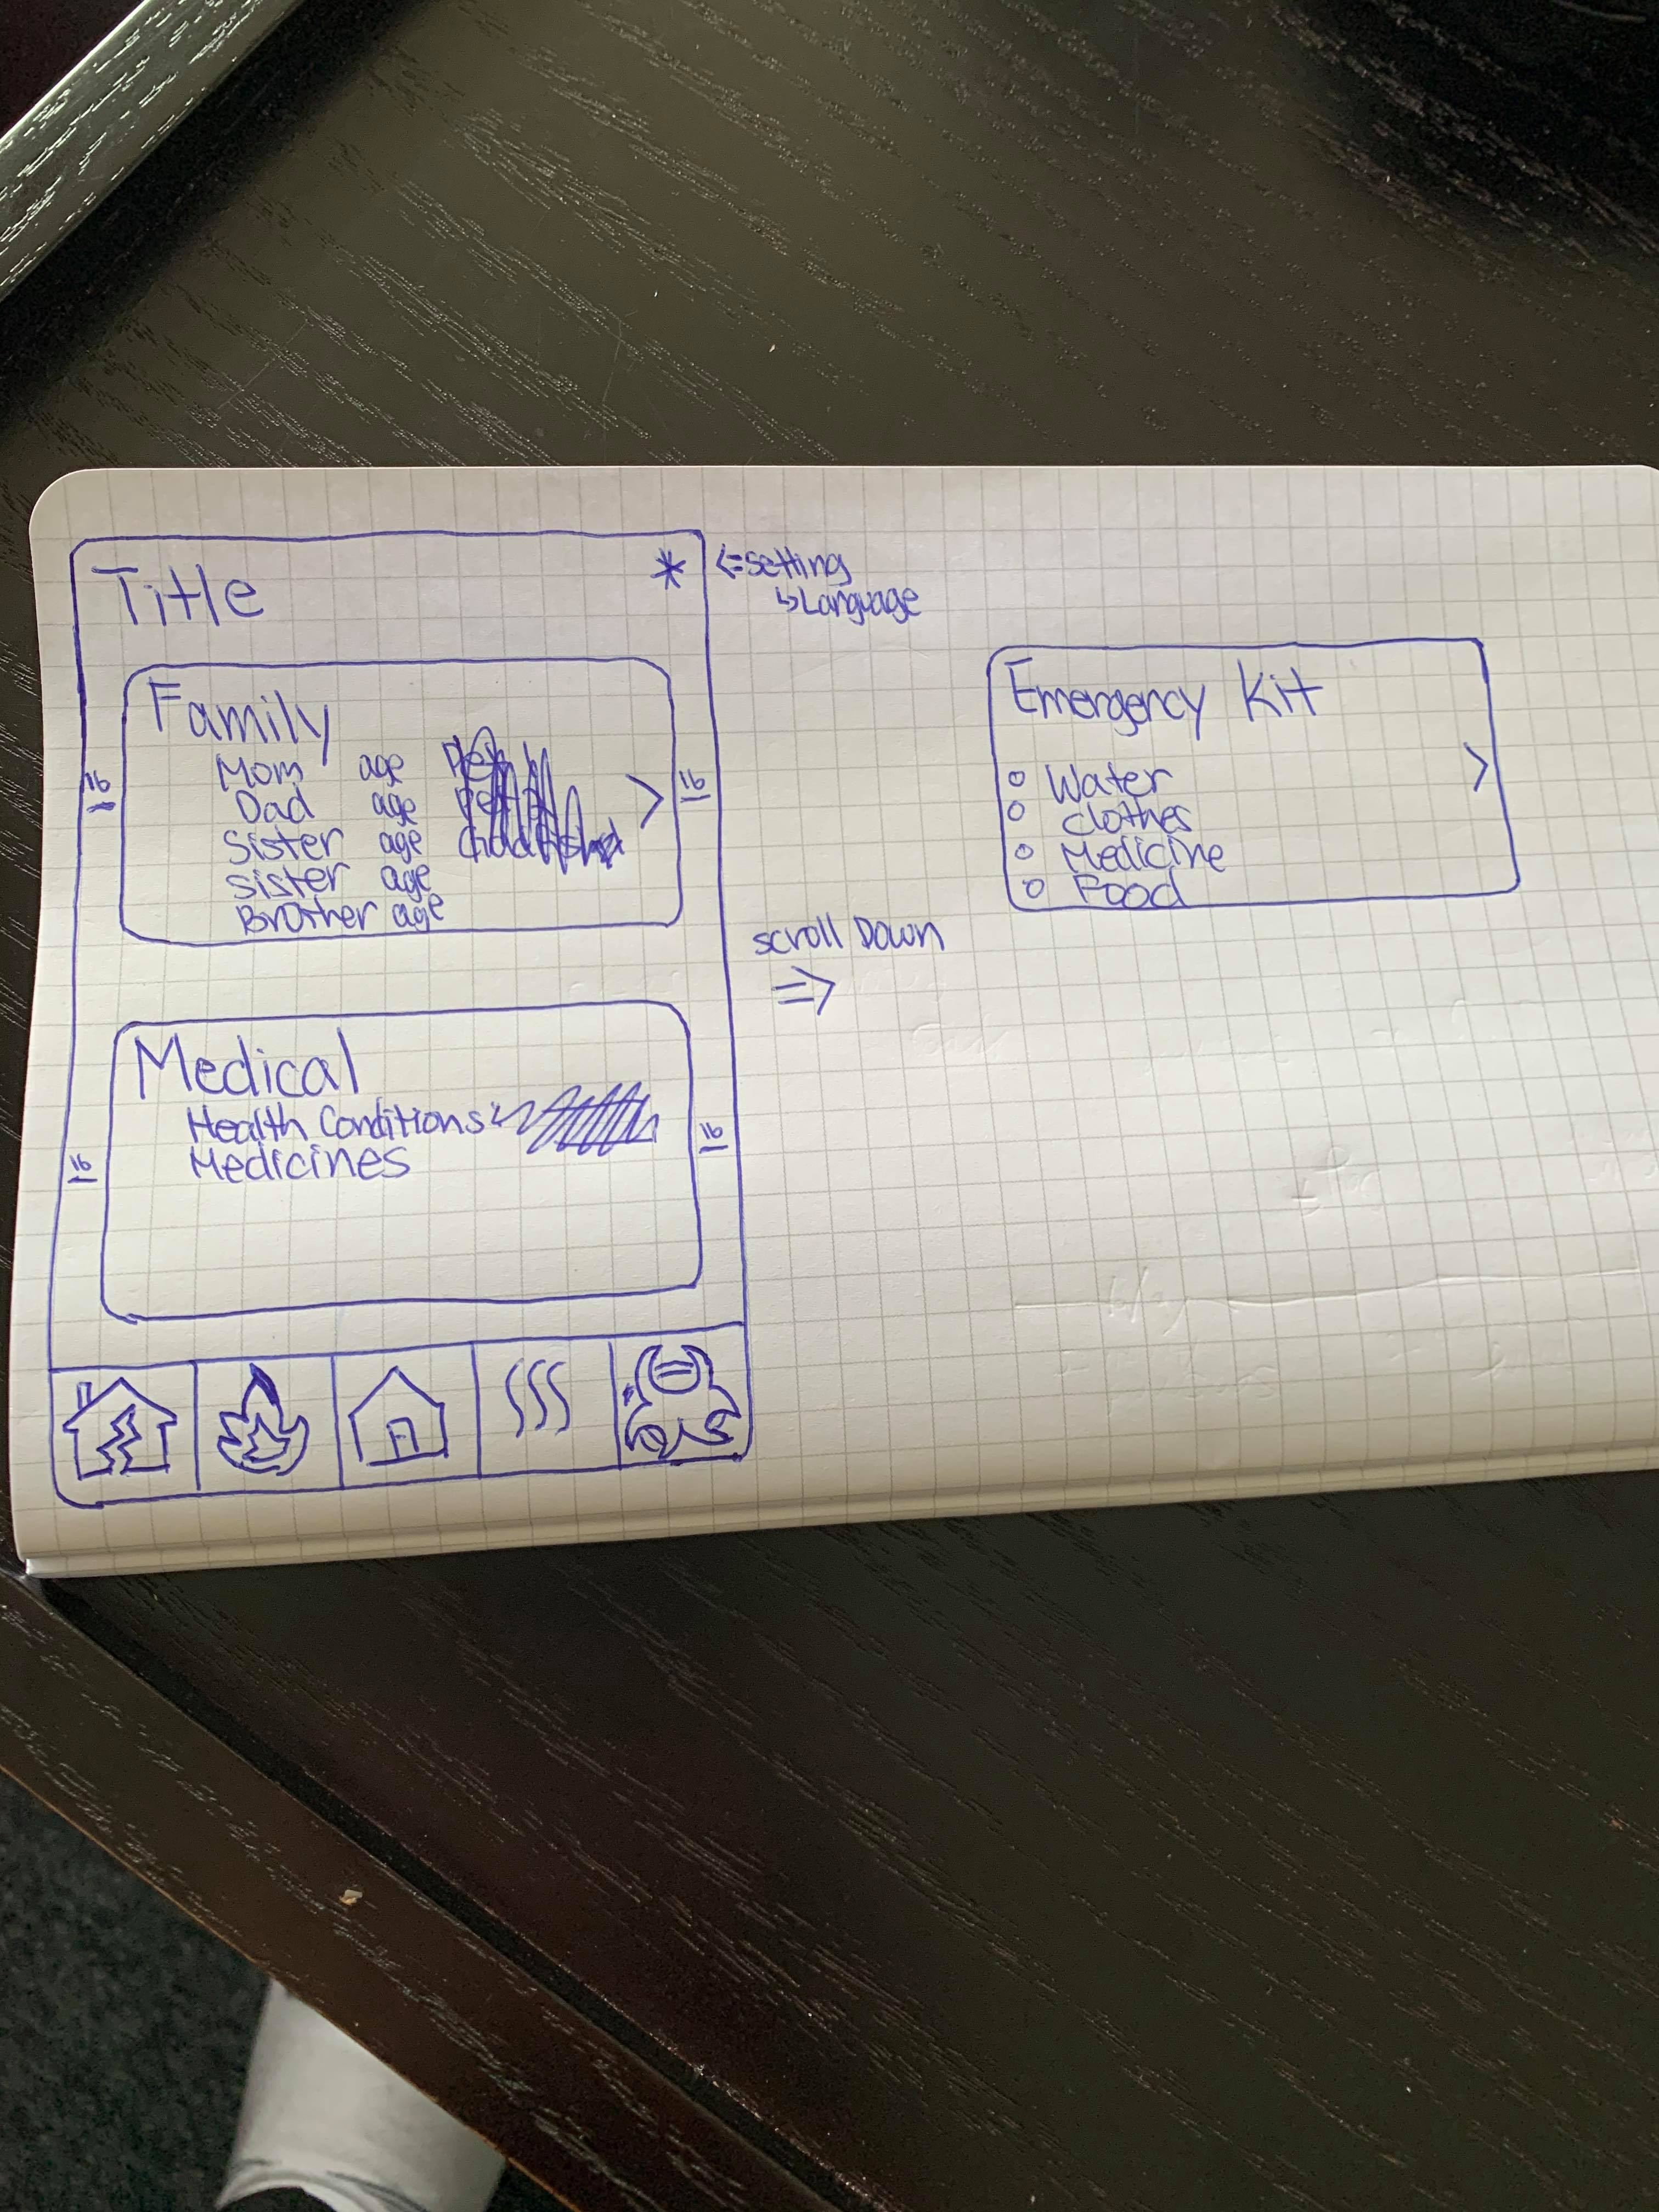 Title *
<= Setting
↳ Language
Family
Mom age
Dad age
Sister age
Sister age
Brother age
>
16
16
Medical
Health Conditions
Medicines
16
16
scroll Down
=>
Emergency Kit
○ Water
○ clothes
○ Medicine
○ Food
>